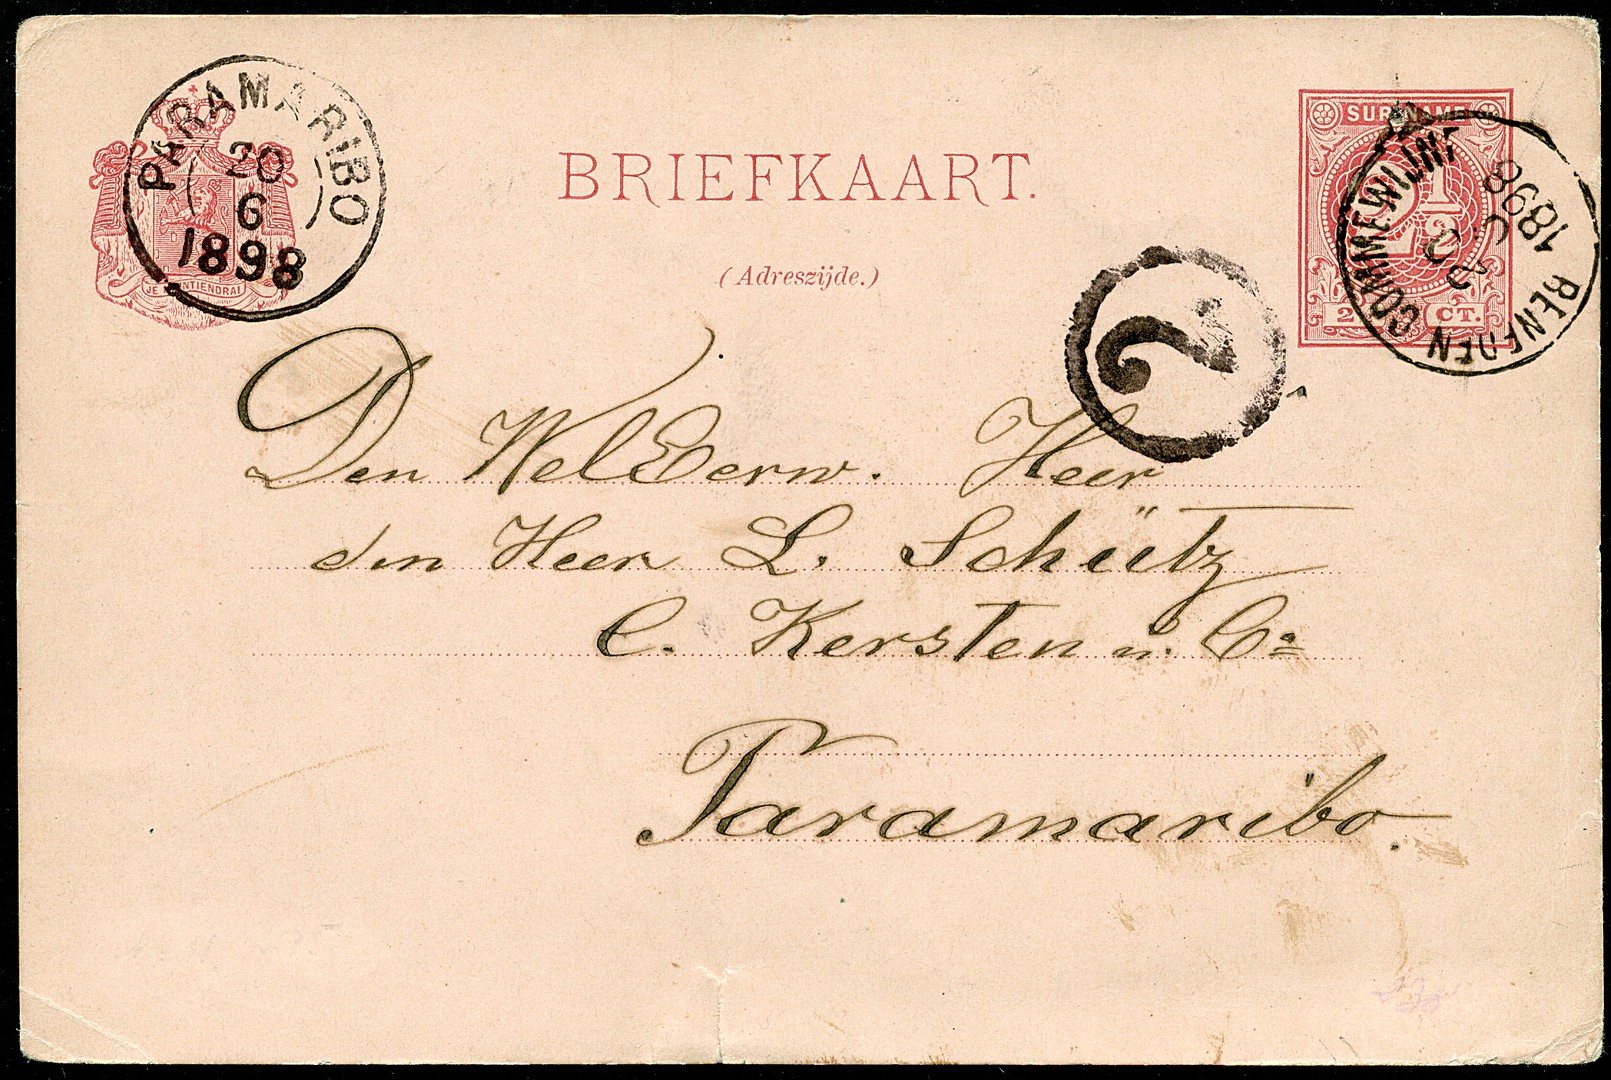 PARAMARIBO
20
6
1898
JE MAINTIENDRAI
BRIEFKAART.
(Adreszijde.)
SURINAME
2 1/2
CT.
BENEDEN COMMEWIJNE
20
1898
2
Den WelEerw. Heer
den Heer L. Schütz
C. Kersten u. Co
Paramaribo.